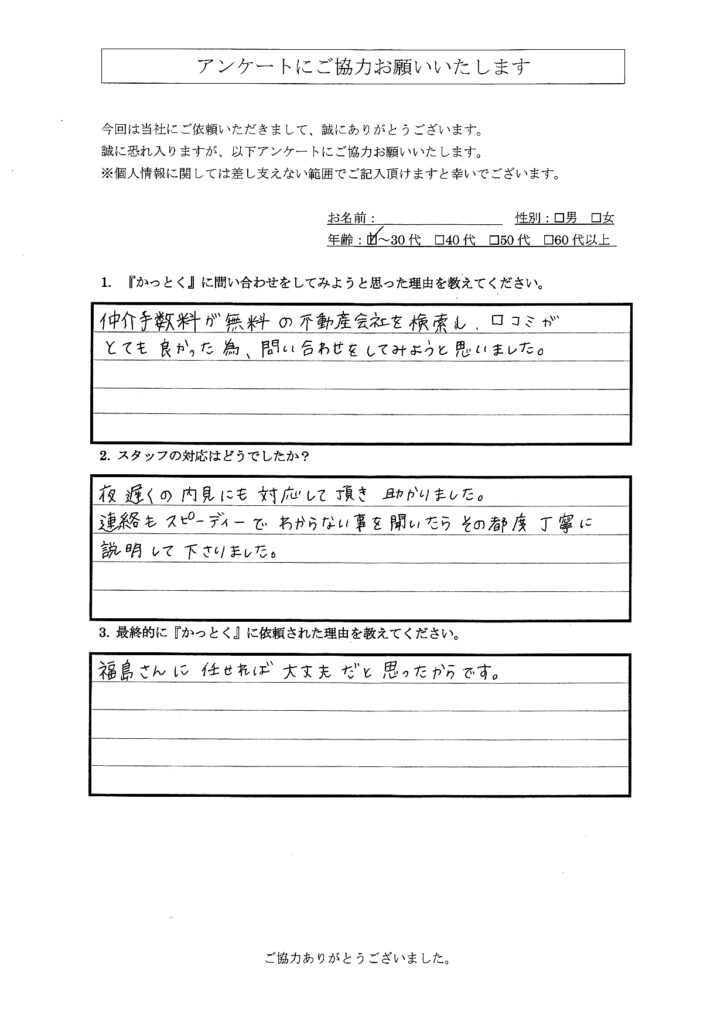 アンケートにご協力お願いいたします
今回は当社にご依頼いただきまして、誠にありがとうございます。
誠に恐れ入りますが、以下アンケートにご協力お願いいたします。
※個人情報に関しては差し支えない範囲でご記入頂けますと幸いでございます。
お名前： 性別：□男 □女
年齢：☑～30代 □40代 □50代 □60代以上
1. 『かっとく』に問い合わせをしてみようと思った理由を教えてください。
仲介手数料が無料の不動産会社を検索し、口コミが
とても良かった為、問い合わせをしてみようと思いました。
2. スタッフの対応はどうでしたか？
夜遅くの内見にも対応して頂き助かりました。
連絡もスピーディーでわからない事を聞いたらその都度丁寧に
説明して下さりました。
3. 最終的に『かっとく』に依頼された理由を教えてください。
福島さんに任せれば大丈夫だと思ったからです。
ご協力ありがとうございました。